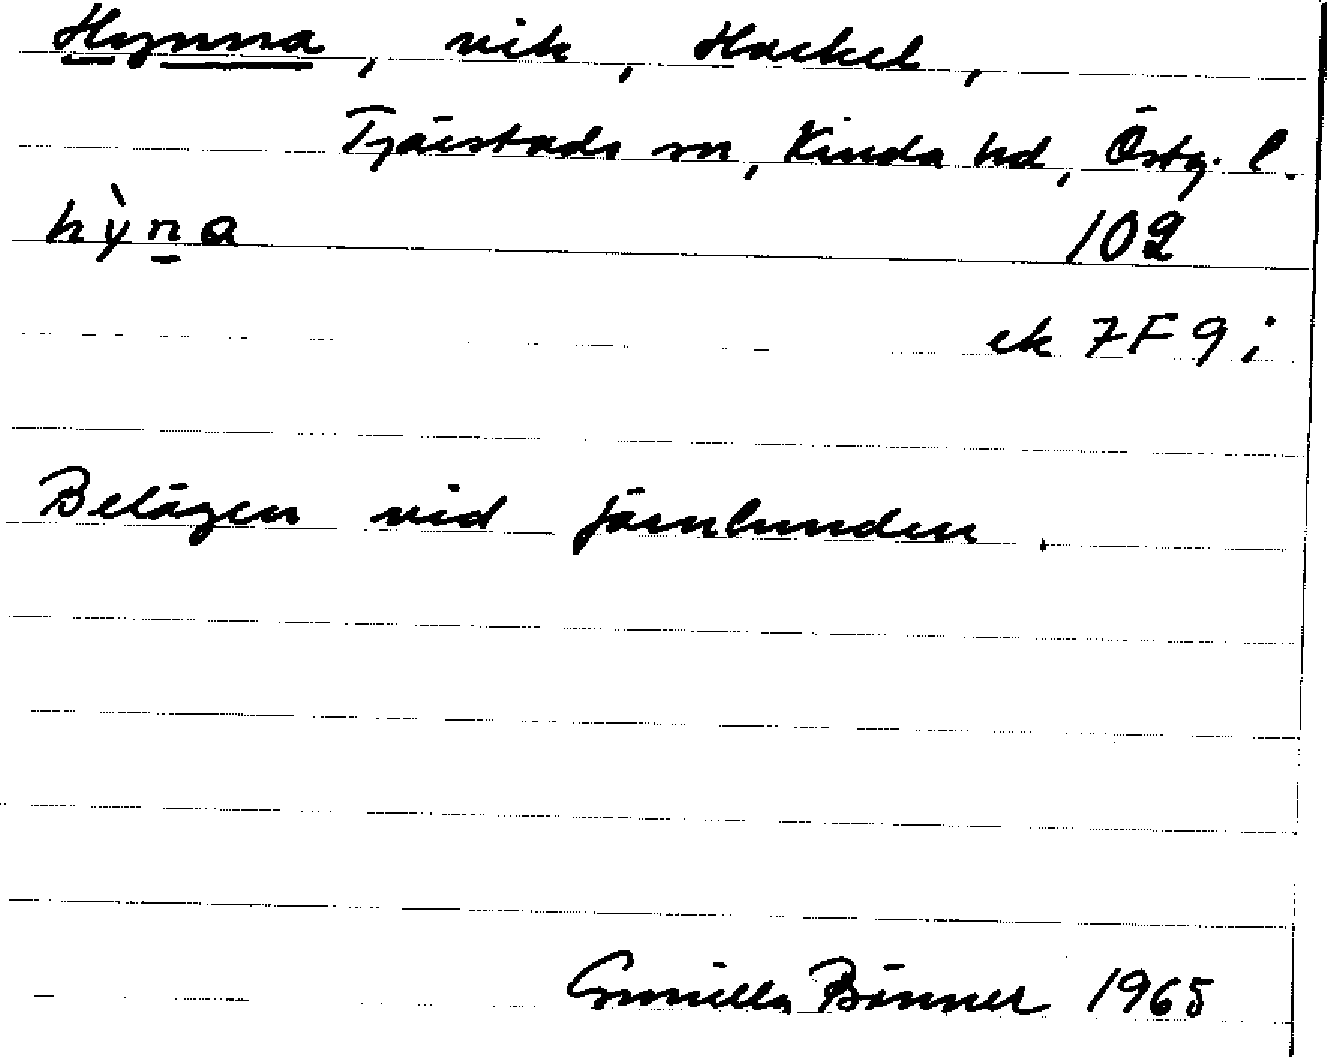 Hynna, vik, Hackel,
Tjärstads sn, Kinda hd, Östg. l.
hỳna 102
ek 7F 9 i
Belägen vid Järnlunden.
Gunilla Bönner 1965